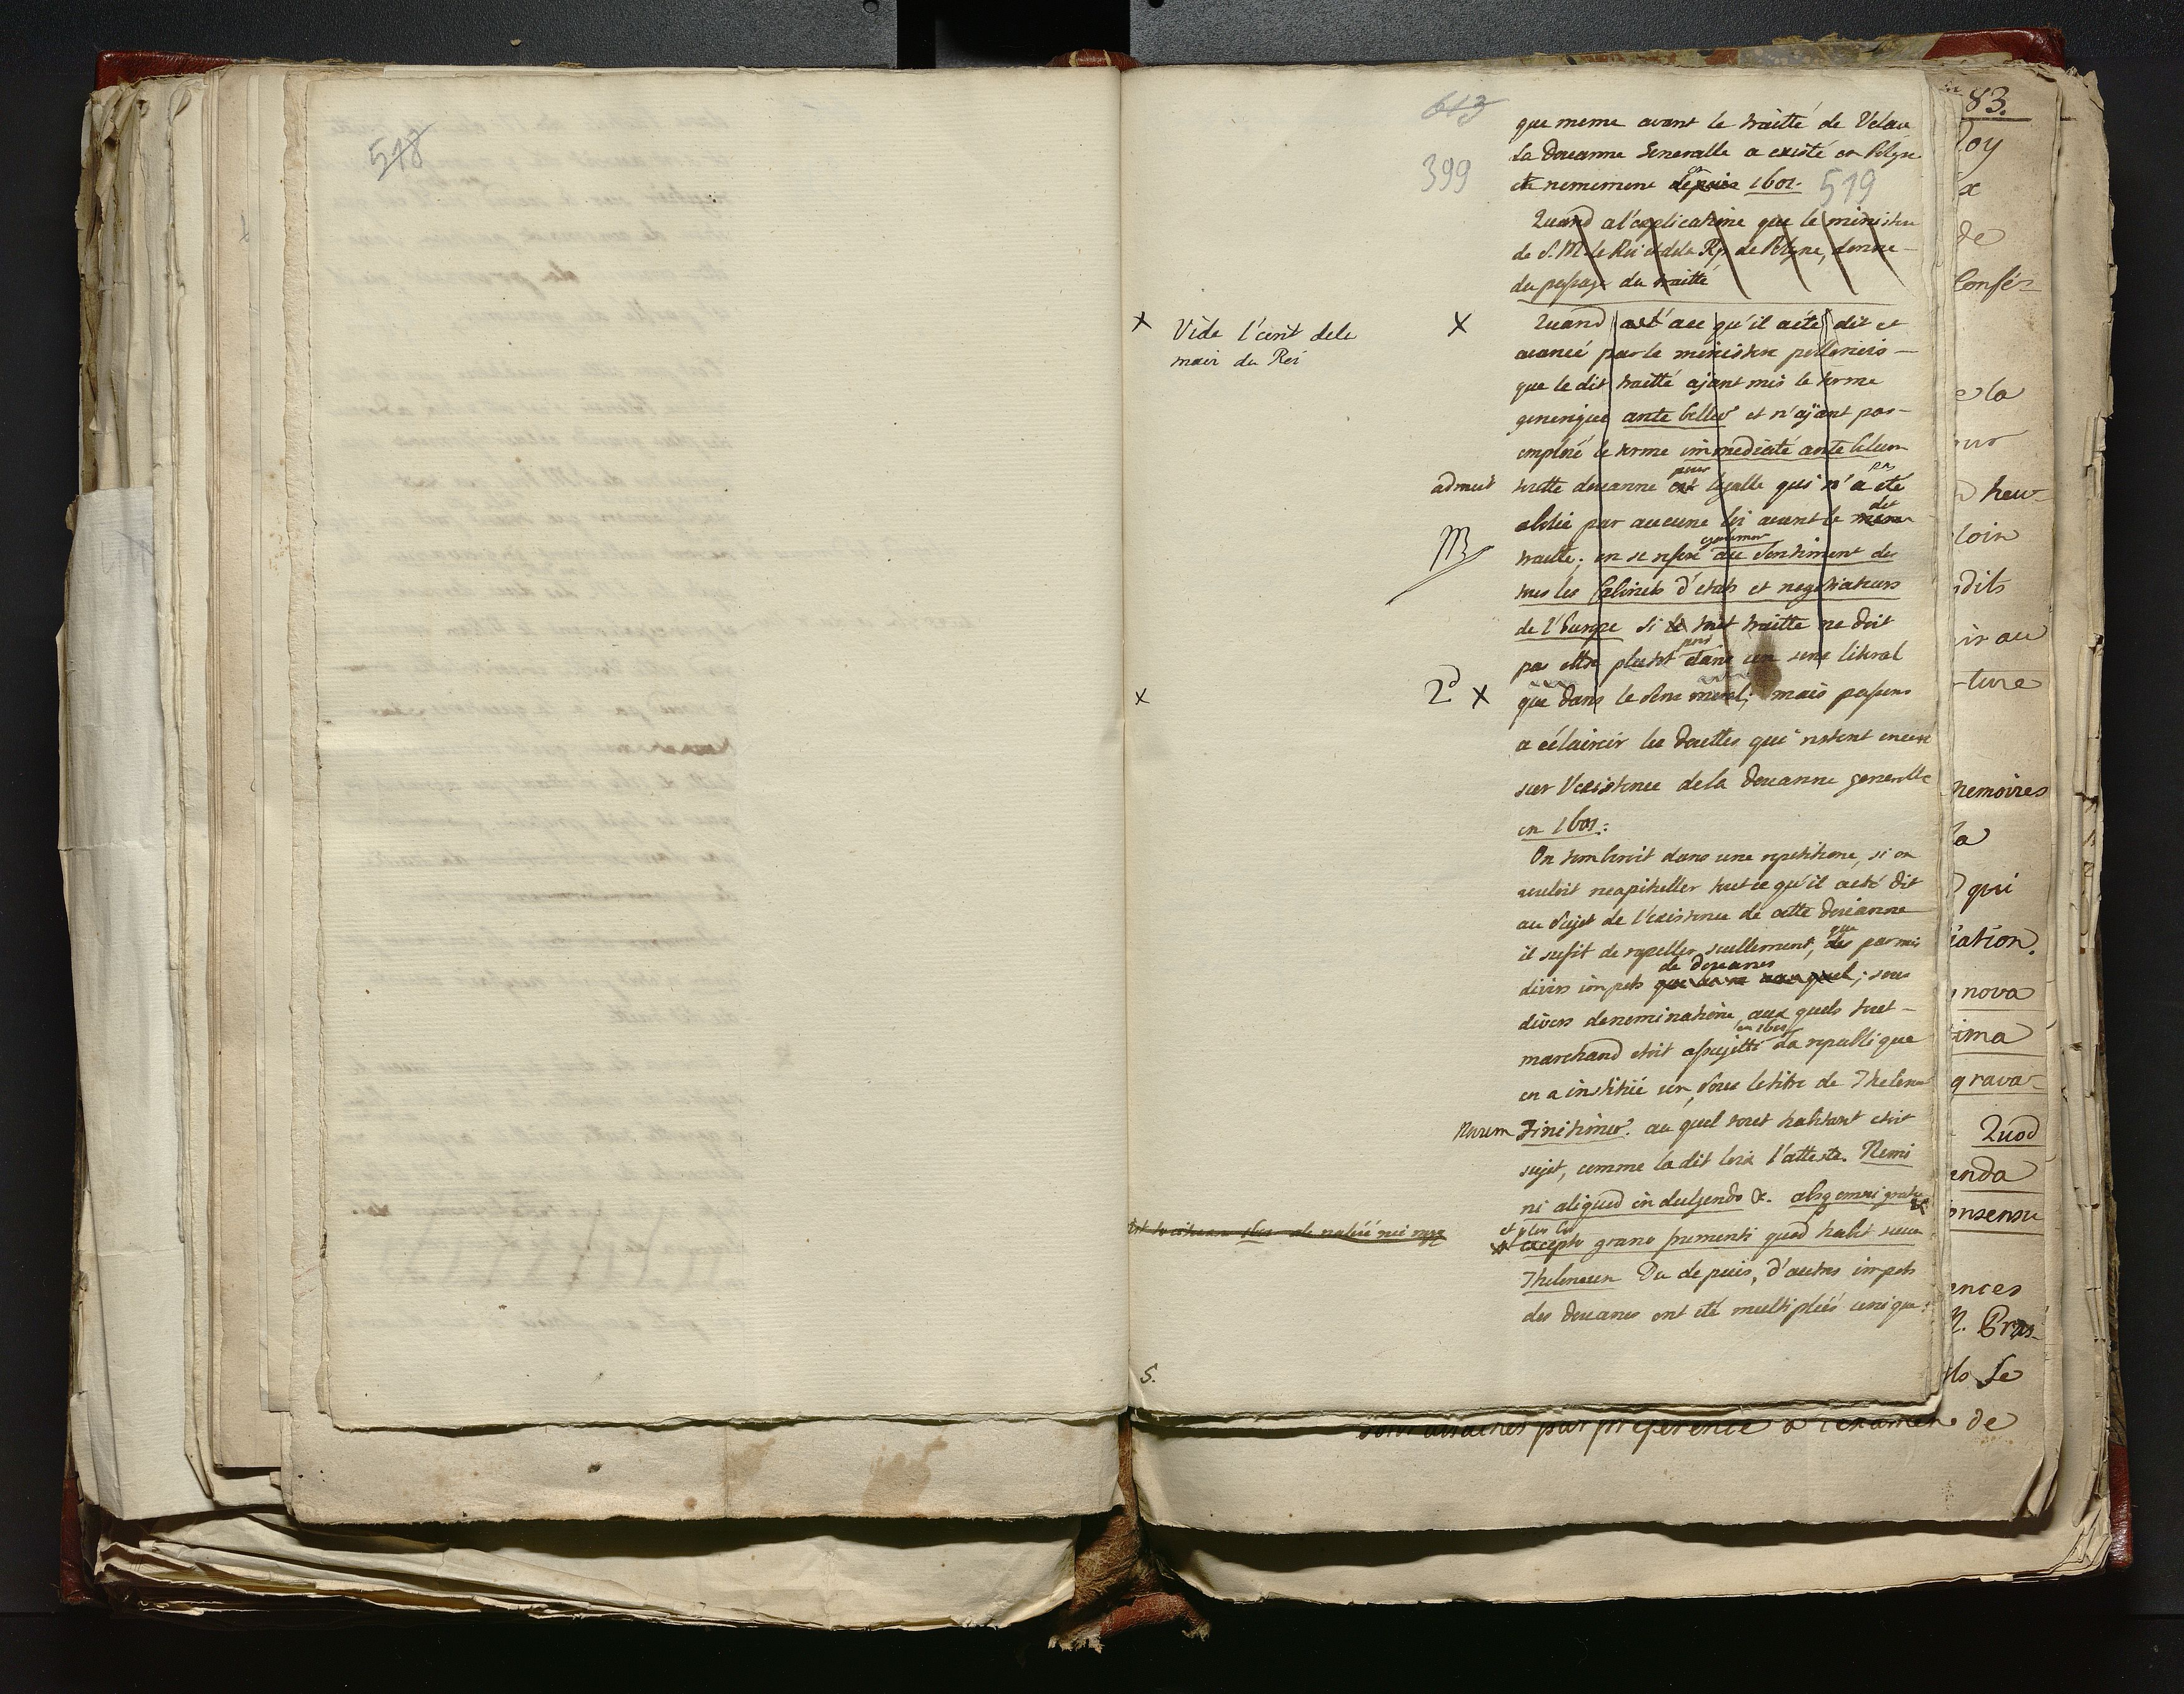 518
613
399
519
que meme avant le traitté de Velau
la douanne Generalle a existé en Pologne
et nemement depuis en 1601.
Quand a l'explicatione que le ministre
de S. M. le Roi et de la Rp. de Pologne, donne
du passage du traitté
X Vide l'ecrit dela
main du Roi
X Quand a ce qu'il a été dit et
avancé par le ministere pollonois
que le dit traitté ajant mis le terme
generique ante bellum et n'ajant pas
emploié le terme immediaté ante bellum
toutte douanne est legalle qui n'a pas été
abolie par aucune loi avant le dit
traitté; on se refere au sentiment de
tous les Cabinets d'etats et negotiateurs
de l'Europe si tout traitté ne doit
pas etre plutot pris dans un sens literal
2d X
X
que dans le sens moral; mais passons
a eclaircir les douttes qui restent encore
sur l'existence de la douanne generalle
en 1601:
On tomberoit dans une repetitione, si on
vouloit recapituller tout ce qu'il a eté dit
au sujet de l'existence de cette douanne
il sufit de rapeller seullement, que parmis
divers impots de douanes; sous
divers denominatione aux quels tout
marchand etoit assujetti en 1601 la republique
en a institué un, sous le titre de Theloneum
Novum Finitimum. au quel tout habitant etoit
sujet, comme la dit loix l'atteste. Nemi
ni aliquid indulgendo &.
et plus bas
excepto grano frumenti quod habet suum
Theloneum Du depuis, d'autres impots
des douanes ont été multipliés
5.
83.
Roy
de
Confé-
de la
heu-
loin
dits
ir au
-ture
memoires
la
qui
iation.
nova
ima
grava-
Quod
enda
onsensu
ences
Bras-
Se
par preference a l'examen de